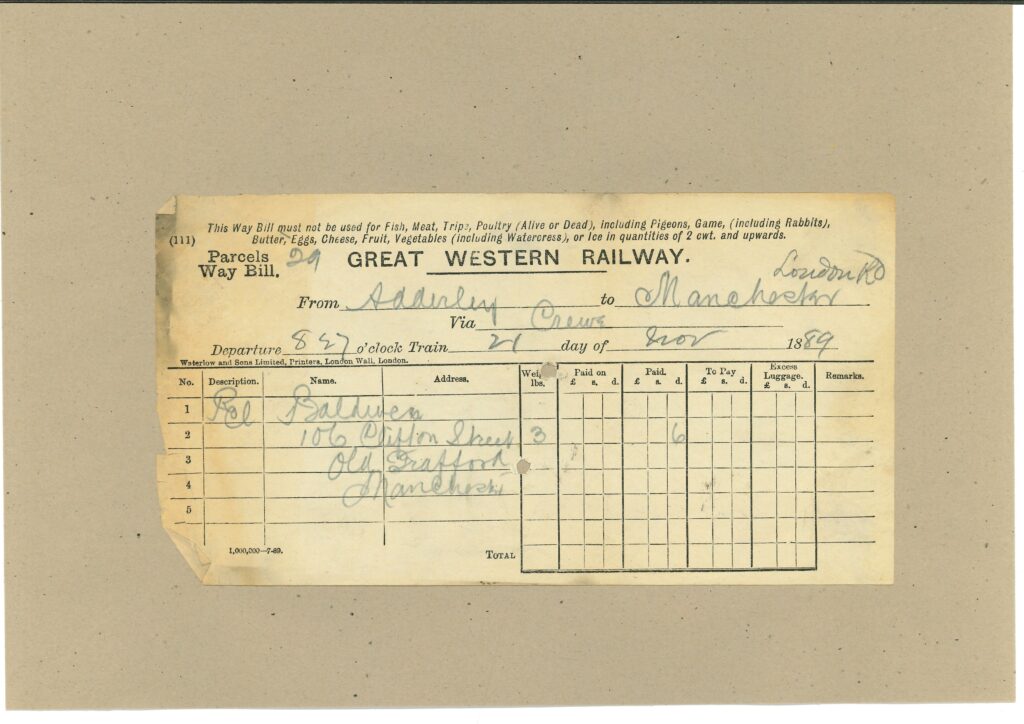 This Way Bill must not be used for Fish, Meat, Tripe, Poultry (Alive or Dead), including Pigeons, Game, (including Rabbits),
(111) Butter, Eggs, Cheese, Fruit, Vegetables (including Watercress), or Ice in quantities of 2 cwt. and upwards.
Parcels Way Bill. 29 GREAT WESTERN RAILWAY.
London Rd
From Adderley to Manchester
Via Crewe
Departure 8 27 o'clock Train 21 day of Nov 1889
Waterlow and Sons Limited, Printers, London Wall, London.
No. Description. Name. Address. Weight lbs. Paid on £ s. d. Paid. £ s. d. To Pay £ s. d. Excess Luggage. £ s. d. Remarks.
1 Pcl
2 106 Clifton Street 3 6
3 Old Trafford
4 Manchester
5
1,000,000—7-89. TOTAL